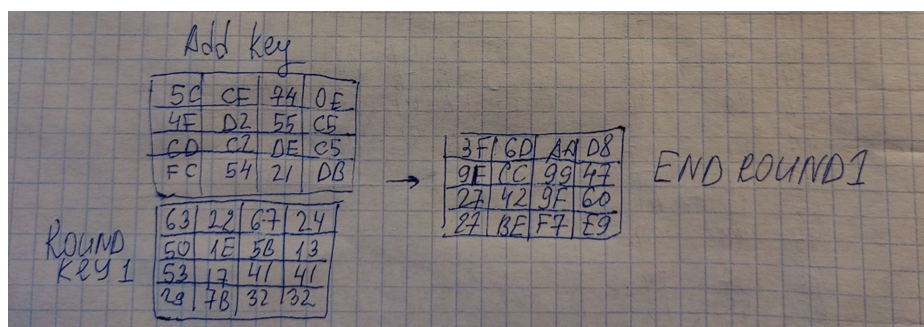 Add Key
5C CE 74 0E
4E D2 55 C5
CD C2 DE C5
FC 54 21 DB
ROUND KEY 1
63 22 67 24
50 1E 5B 13
53 17 41 41
29 7B 32 32
→
3F 6D AA D8
9E CC 99 47
27 42 9F 60
27 BE F7 E9
END ROUND 1